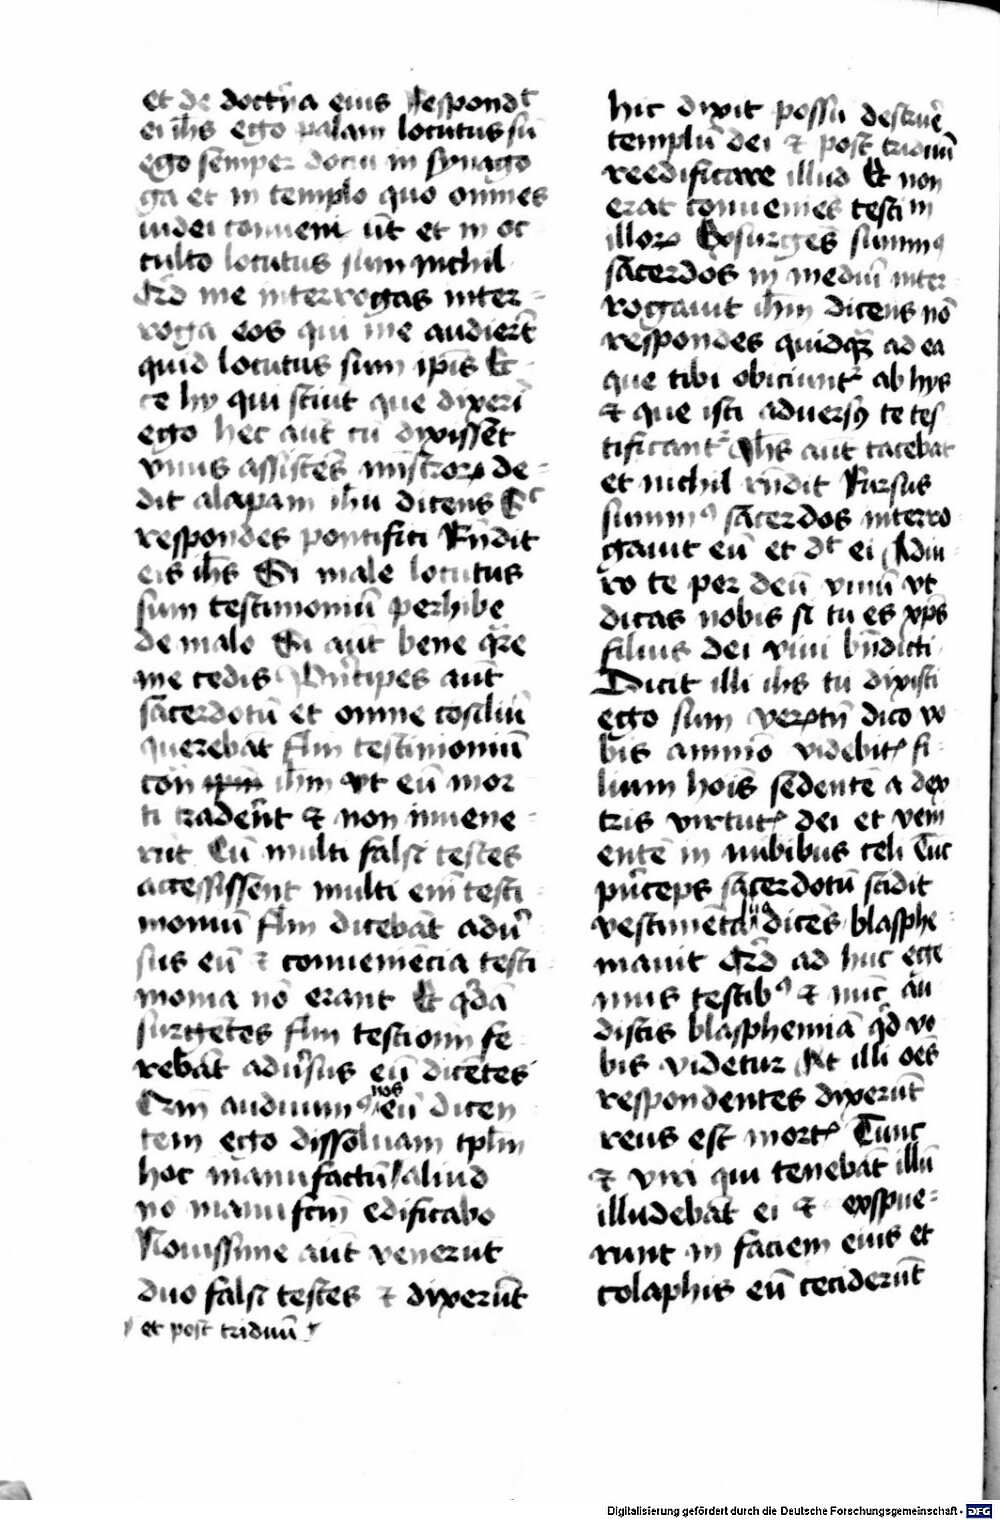 et de doctⁱna eius Respondᵗ
ei ih̄s ego palam locutus sū
ego semper docui in synago
ga et in templo quo omnes
iudei conueni ūt et in oc
culto locutus sum nichil
Qⁱd me interrogas inter-
roga eos qui me audierūt
quid locutus sum ip̄is Ec
ce hij qui sciūt que dixerī
ego hec aūt cū dixisset
vnus assistēs mīstroꝝ de-
dit alapam ih̄u dicens Sᶜ
respondes pontifici Rn̄dit
eis ih̄s Si male locutus
sum testimoniū perhibe
de malo Si aūt bene qᵃre
me cedis Pⁱncipes aūt
sacerdotū et omne cōsiliū
querebāt flm̄ testimoniū
con̄ ih̄m vt eū mor
ti traderēt ⁊ non inuene-
rūt Cū multi falsi testes
accessissent multi em̄ testi-
moniū flm̄ dicebāt aduʳ
sus eū ⁊ conueniēcia testi
monia nō erant Et qⁱdā
surgētes flm̄ testioīm fe-
rebāt adūsus eū dicētes
Qm̄ audiuimꝰ nos eū dicen
tem ego dissoluam tplm̄
hoc manufactū / aliud
nō manu fcm̄ edificabo
Nouissime aūt venerūt
duo falsi testes ⁊ dixerūt
et post triduū
hic dixit possū destruēʳ
templū dei ⁊ post triduū
reedificare illud Et non
erat conueniēs testim
illoꝝ Exsurgēs summꝰ
sacerdos in mediū inter-
rogauit ih̄m dicens nō
respondes quidqᵃꝫ ad ea
que tibi obiciuntʳ ab hijs
⁊ que isti aduersꝰ te tes
tificantʳ Ih̄s aūt tacebat
et nichil rn̄dit Rursus
summꝰ sacerdos interro
gauit eū et dᵗ ei Adiu-
ro te per deū viuū vt
dicas nobis si tu es xp̄s
filius dei viui bn̄dicti
Dicit illi ih̄s tu dixisti
ego sum veꝝtn̄ dico vo
bis ammō videbitꝭ fi-
lium hoīs sedentē a dex
tris virtutꝭ dei et veni
entē in nubibus celi Tūc
pⁱnceps sacerdotū scidit
vestimēta sua dicēs blasphe-
mauit Qⁱd ad huc ege
mus testibꝰ ⁊ nūc au
distis blasphemiā qⁱd vo
bis videtur At illi oēs
respondentes dixerūt
reus est mortꝭ Tunc
⁊ viri qui tenebāt illū
illudebāt ei ⁊ exspue-
runt in faciem eius et
colaphis eū ceciderūt
Digitalisierung gefördert durch die Deutsche Forschungsgemeinschaft - DFG